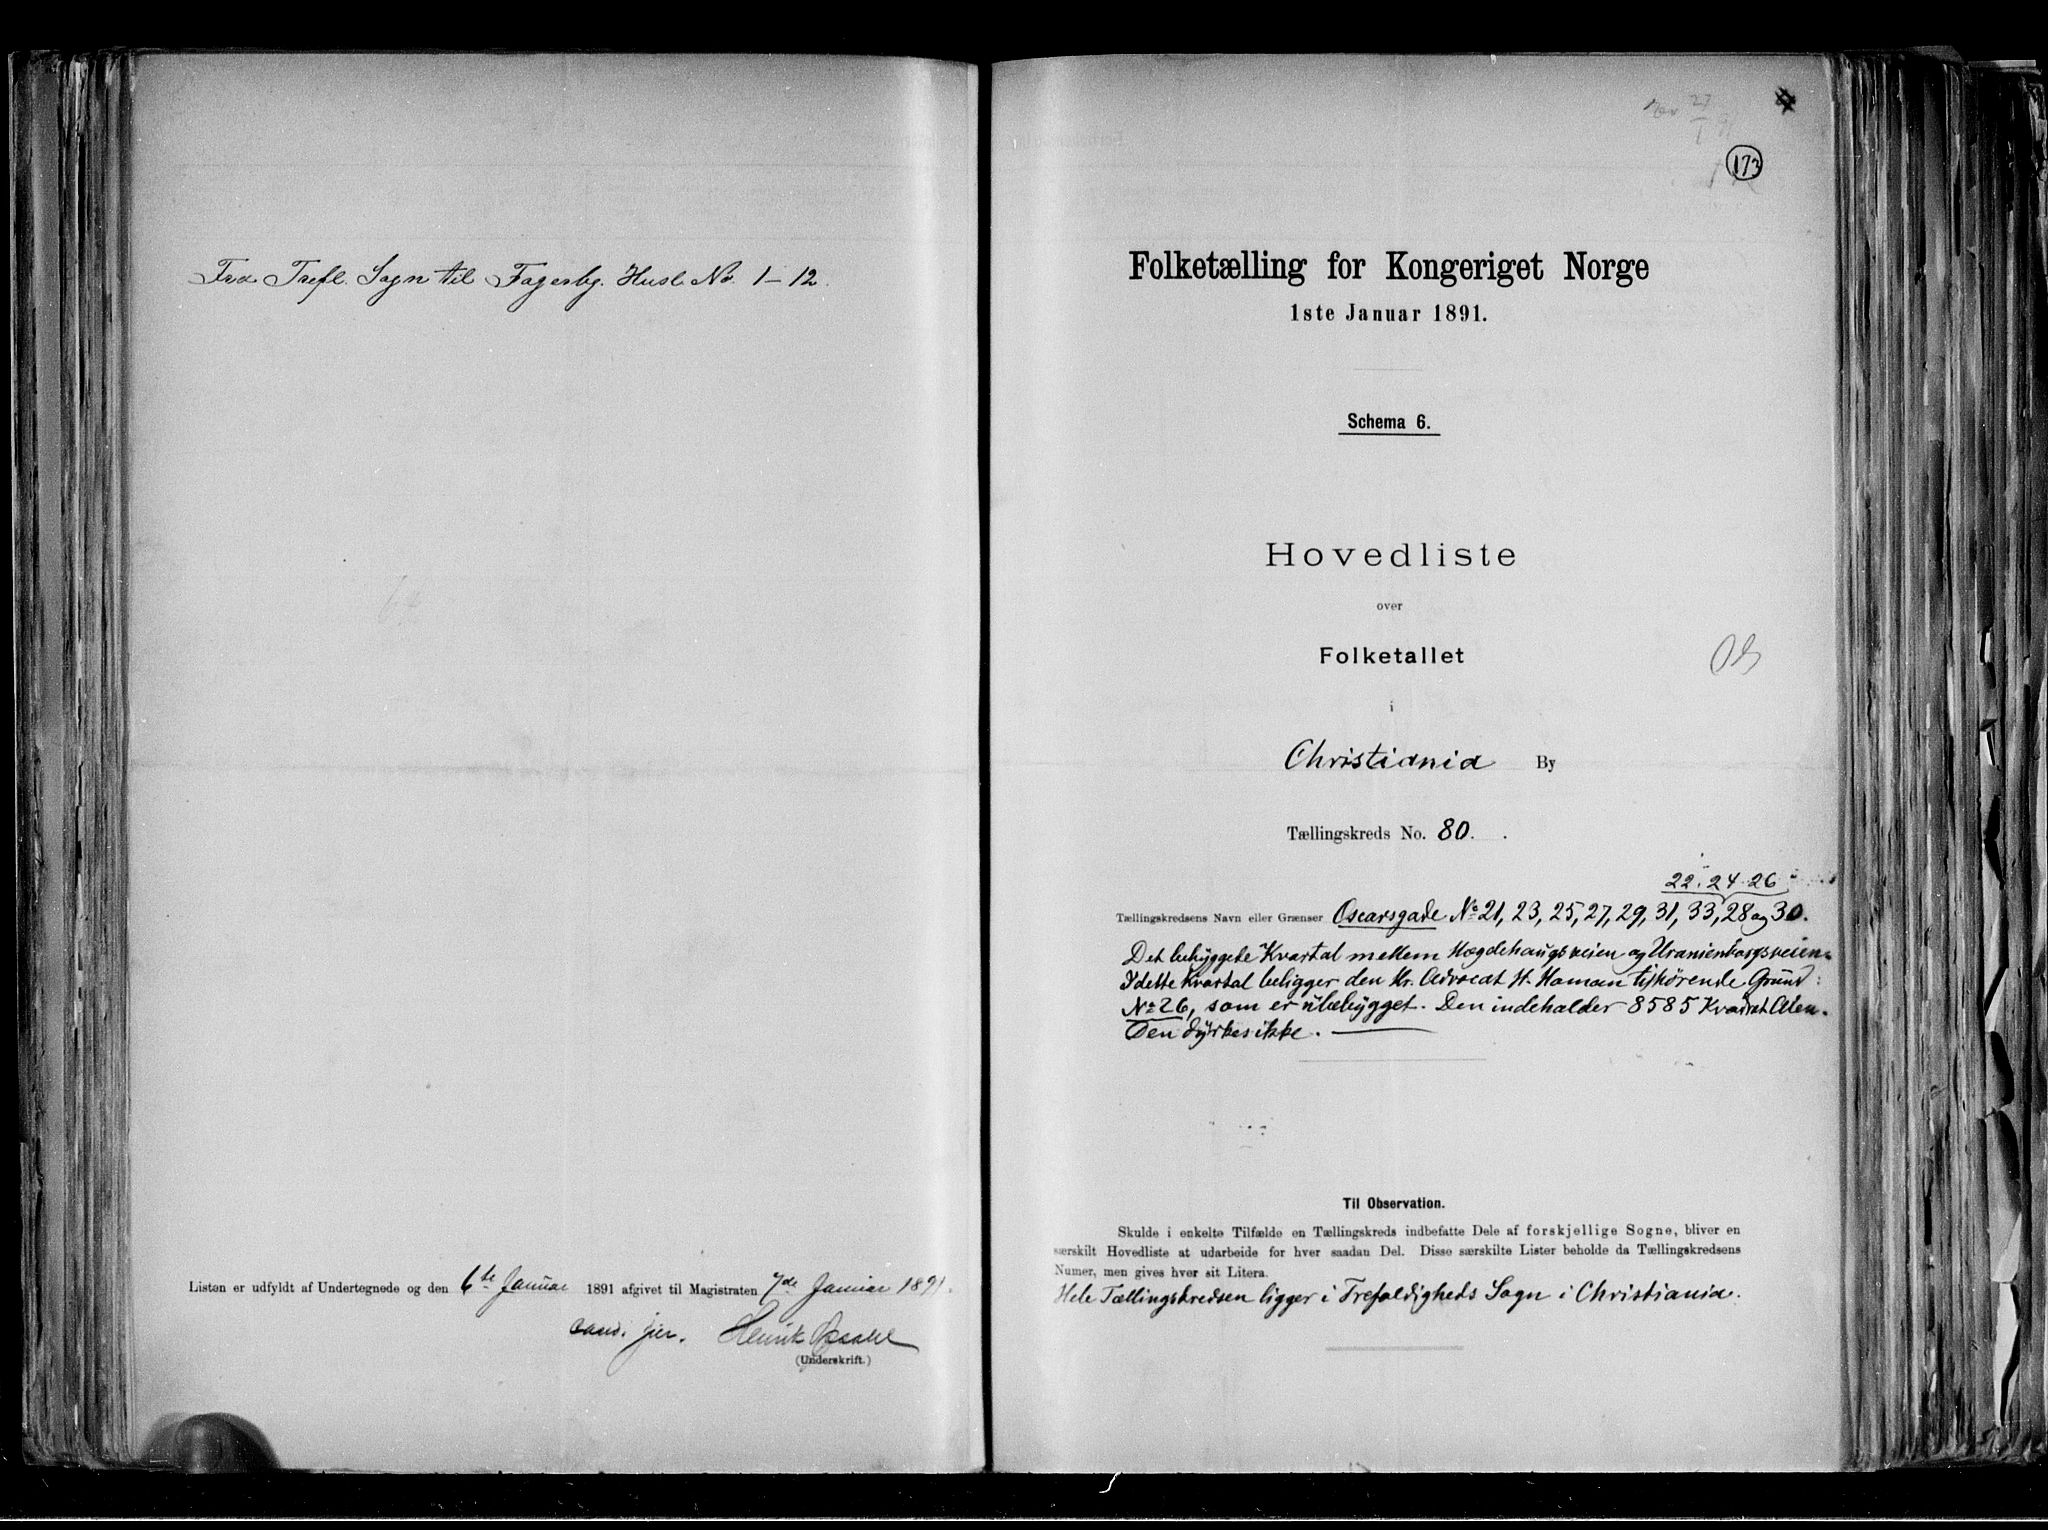 Fra Trefl. Sogn til Fagerbg. Husl. No. 1–12.
Listen er udfyldt af Undertegnede og den 6te Januar 1891 afgivet til Magistraten 7de Januar 1891.
cand. jur. Henrik
(Underskrift.)
27
173
Folketælling for Kongeriget Norge
1ste Januar 1891.
Schema 6.
Hovedliste
over
Folketallet
i
Christiania By
Tællingskreds No. 80.
22. 24. 26
Tællingskredsens Navn eller Grænser Oscarsgade No 21, 23, 25, 27, 29, 31, 33, 28 og 30.
Det bebyggede Kvartal mellem Hægdehaugsveien og Uranienborgsveien.
I dette Kvartal beligger den Hr. Advocat H. Homan tilhørende Grund:
No 26, som er ubebygget. Den indeholder 8585 Kvadrat Alen.
Den dyrkes ikke.
Til Observation.
Skulde i enkelte Tilfælde en Tællingskreds indbefatte Dele af forskjellige Sogne, bliver en
særskilt Hovedliste at udarbeide for hver saadan Del. Disse særskilte Lister beholde da Tællingskredsens
Numer, men gives hver sit Litera.
Hele Tællingskredsen ligger i Trefoldigheds Sogn i Christiania.